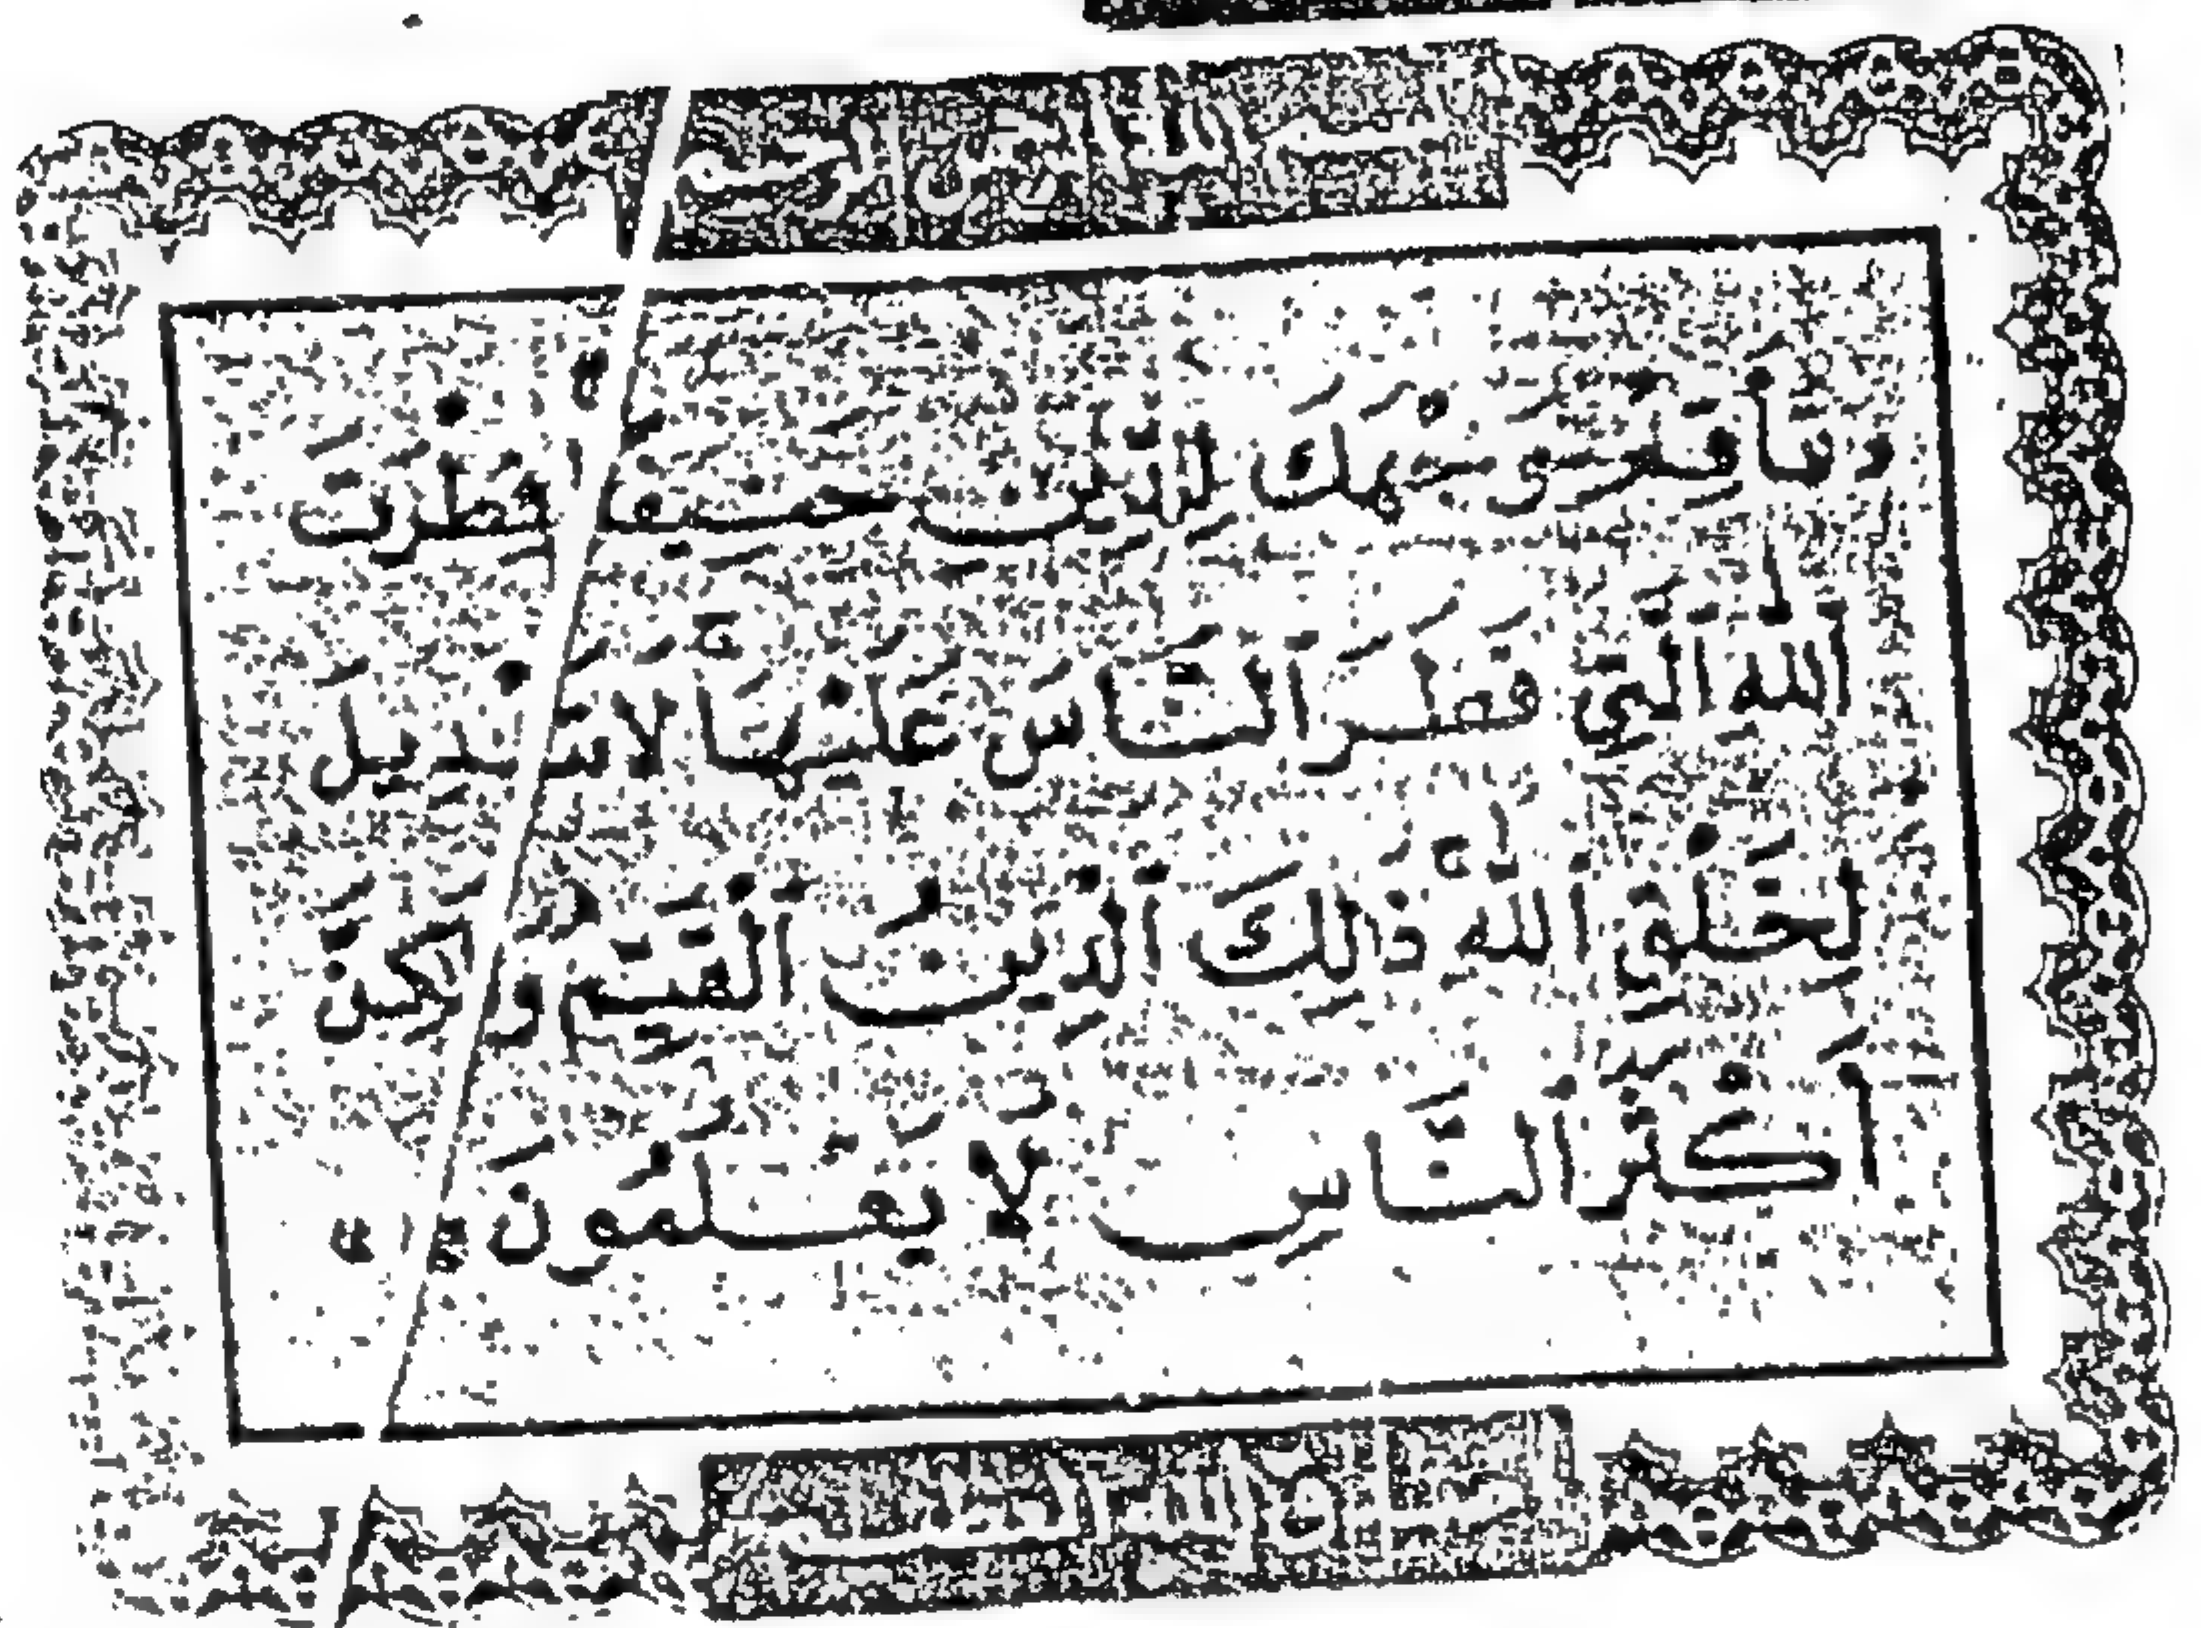 بسم الله الرحمن الرحيم
فأقم وجهك للدين حنيفا فطرت
ٱللَّهِ ٱلَّتِي فَطَرَ ٱلنَّاسَ عَلَيْهَا لَا تَبْدِيلَ
لِخَلْقِ ٱللَّهِ ذَٰلِكَ ٱلدِّينُ ٱلْقَيِّمُ وَلَٰكِنَّ
أَكْثَرَ ٱلنَّاسِ لَا يَعْلَمُونَ
صدق الله العظيم